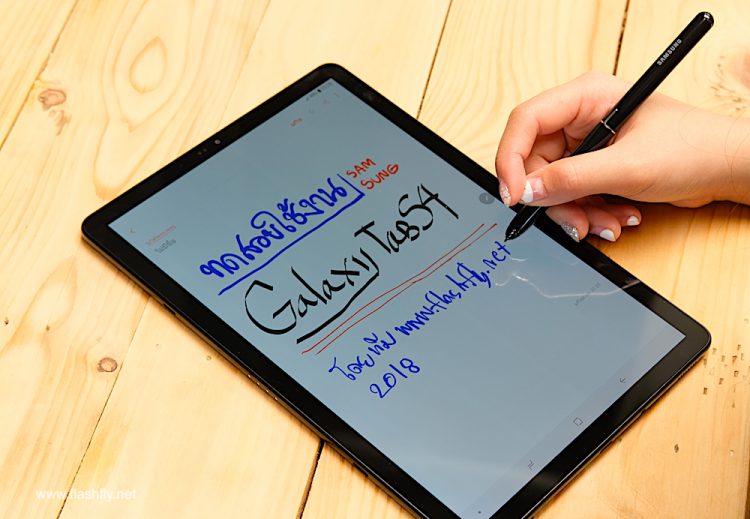 ทดสอบใช้งาน
SAM
SUNG
Galaxy Tab S4
โดยทีม www.flashfly.net
2018
SAMSUNG
www.flashfly.net